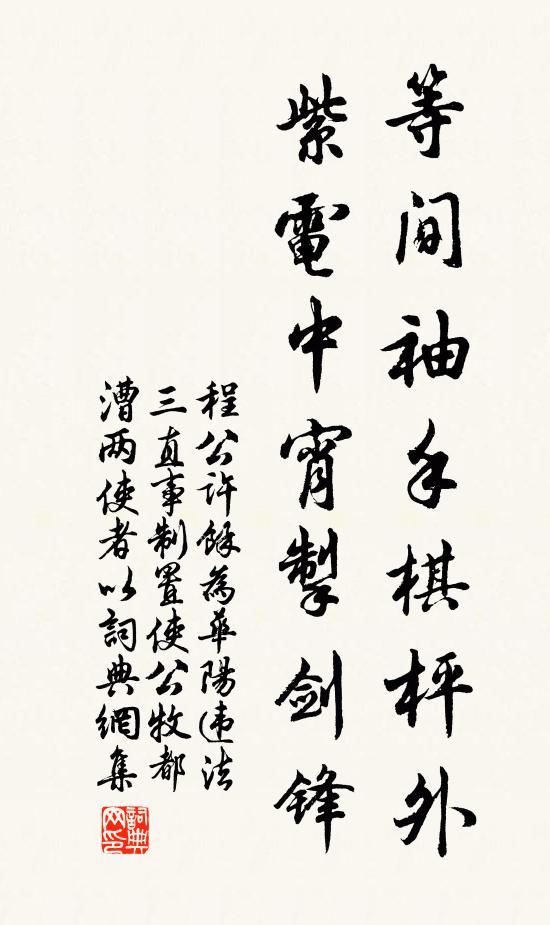 等間袖手棋枰外
紫電中宵掣剑鋒
程公許餘為華陽违法
三直事制置使公牧都
漕两使者以詞典網集
詞典网印